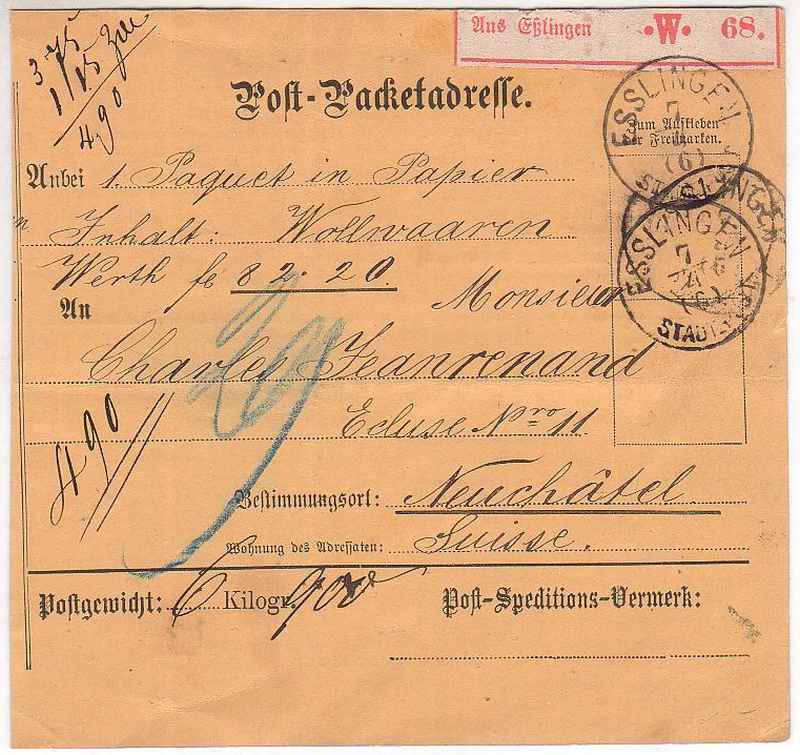 Aus Eßlingen ·W· 68.
3 75
1/15 Zoll
490
Post-Packetadresse.
ESSLINGEN
7
(6)
Zum Aufkleben
der Freimarken.
Anbei 1. Paquet in Papier
Inhalt: Wollwaaren
Werth fc 82.20 Monsieur
ESSLINGEN
7
(6)
STADT
An
Charles Jeanrenand
Ecluse Nro 11
490
29
Bestimmungsort: Neuchâtel
Wohnung des Adressaten: Suisse.
Postgewicht: 6 Kilogr. 900
Post-Speditions-Vermerk: